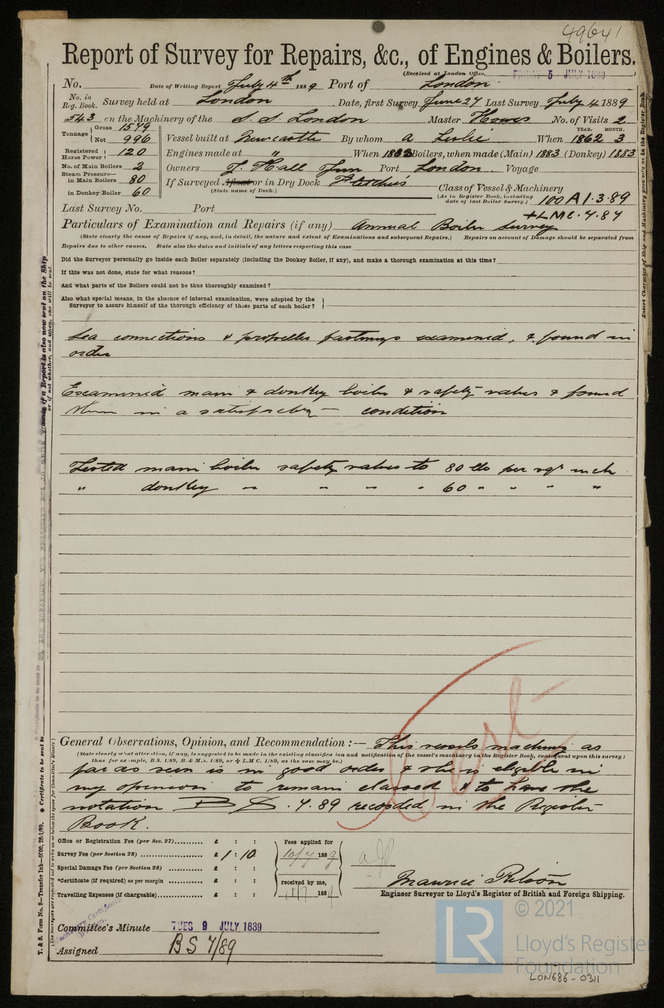 49641
Report of Survey for Repairs, &c., of Engines & Boilers.
(Received at London Office, FRIDAY 5 JULY 1889
No. Date of Writing Report July 4th 1889 Port of London
No. in Reg. Book. Survey held at London Date, first Survey June 27 Last Survey July 4 1889
543 on the Machinery of the S.S. London Master Howes No. of Visits 2
Tonnage Gross 1549 Net 996 Vessel built at Newcastle By whom A Leslie When YEAR. 1862 MONTH. 3
Registered Horse Power 120 Engines made at " When 1882 Boilers, when made (Main) 1883 (Donkey) 1883
No. of Main Boilers 2 Owners J. Hall Jun Port London Voyage
Steam Pressure— in Main Boilers 80 If Surveyed Afloat or in Dry Dock Fletcher's
in Donkey Boiler 60 (State name of Dock.)
Class of Vessel & Machinery
(As in Register Book, including date of last Boiler Survey.) 100 A1.3.89
Last Survey No. Port +LMC.4.87
Particulars of Examination and Repairs (if any) Annual Boiler Survey
(State clearly the cause of Repairs if any, and, in detail, the nature and extent of Examinations and subsequent Repairs.) Repairs on account of Damage should be separated from
Repairs due to other causes. State also the dates and initials of any letters respecting this case
Did the Surveyor personally go inside each Boiler separately (including the Donkey Boiler, if any), and make a thorough examination at this time?
If this was not done, state for what reasons?
And what parts of the Boilers could not be thus thoroughly examined?
Also what special means, in the absence of internal examination, were adopted by the
Surveyor to assure himself of the thorough efficiency of those parts of each boiler?
Sea connections & propeller fastnings examined, & found in
order
Examined main & donkey boiler & safety valves & found
them in a satisfactory condition
Tested main boiler safety valves to 80 lbs per sqr inch
" donkey " " " " 60 " " " "
General Observations, Opinion, and Recommendation :— This vessels machinery as
(State clearly what alteration, if any, is suggested to be made in the existing classification and notification of the vessel's machinery in the Register Book, consequent upon this survey;
thus for example, B.S. 1/89, B. & M.S. 1/89, or L.M.C. 1/89, as the case may be.)
far as seen is in good order & she is eligible in
my opinion to remain classed & to have the
notation B S. 7.89 recorded in the Register
Book.
Office or Registration Fee (per Sec. 27) £ : :
Survey Fee (per Section 28) £ 1 : 10
Special Damage Fee (per Section 28) £ : :
*Certificate (if required) as per margin £ : :
Travelling Expenses (if chargeable) £ : :
Fees applied for
10/7 1889
received by me,
188
Maurice Wilson
Engineer Surveyor to Lloyd's Register of British and Foreign Shipping.
Committee's Minute TUES 9 JULY 1889
Assigned BS 7/89
LR
© 2021
Lloyd's Register
Foundation
LON686-0311